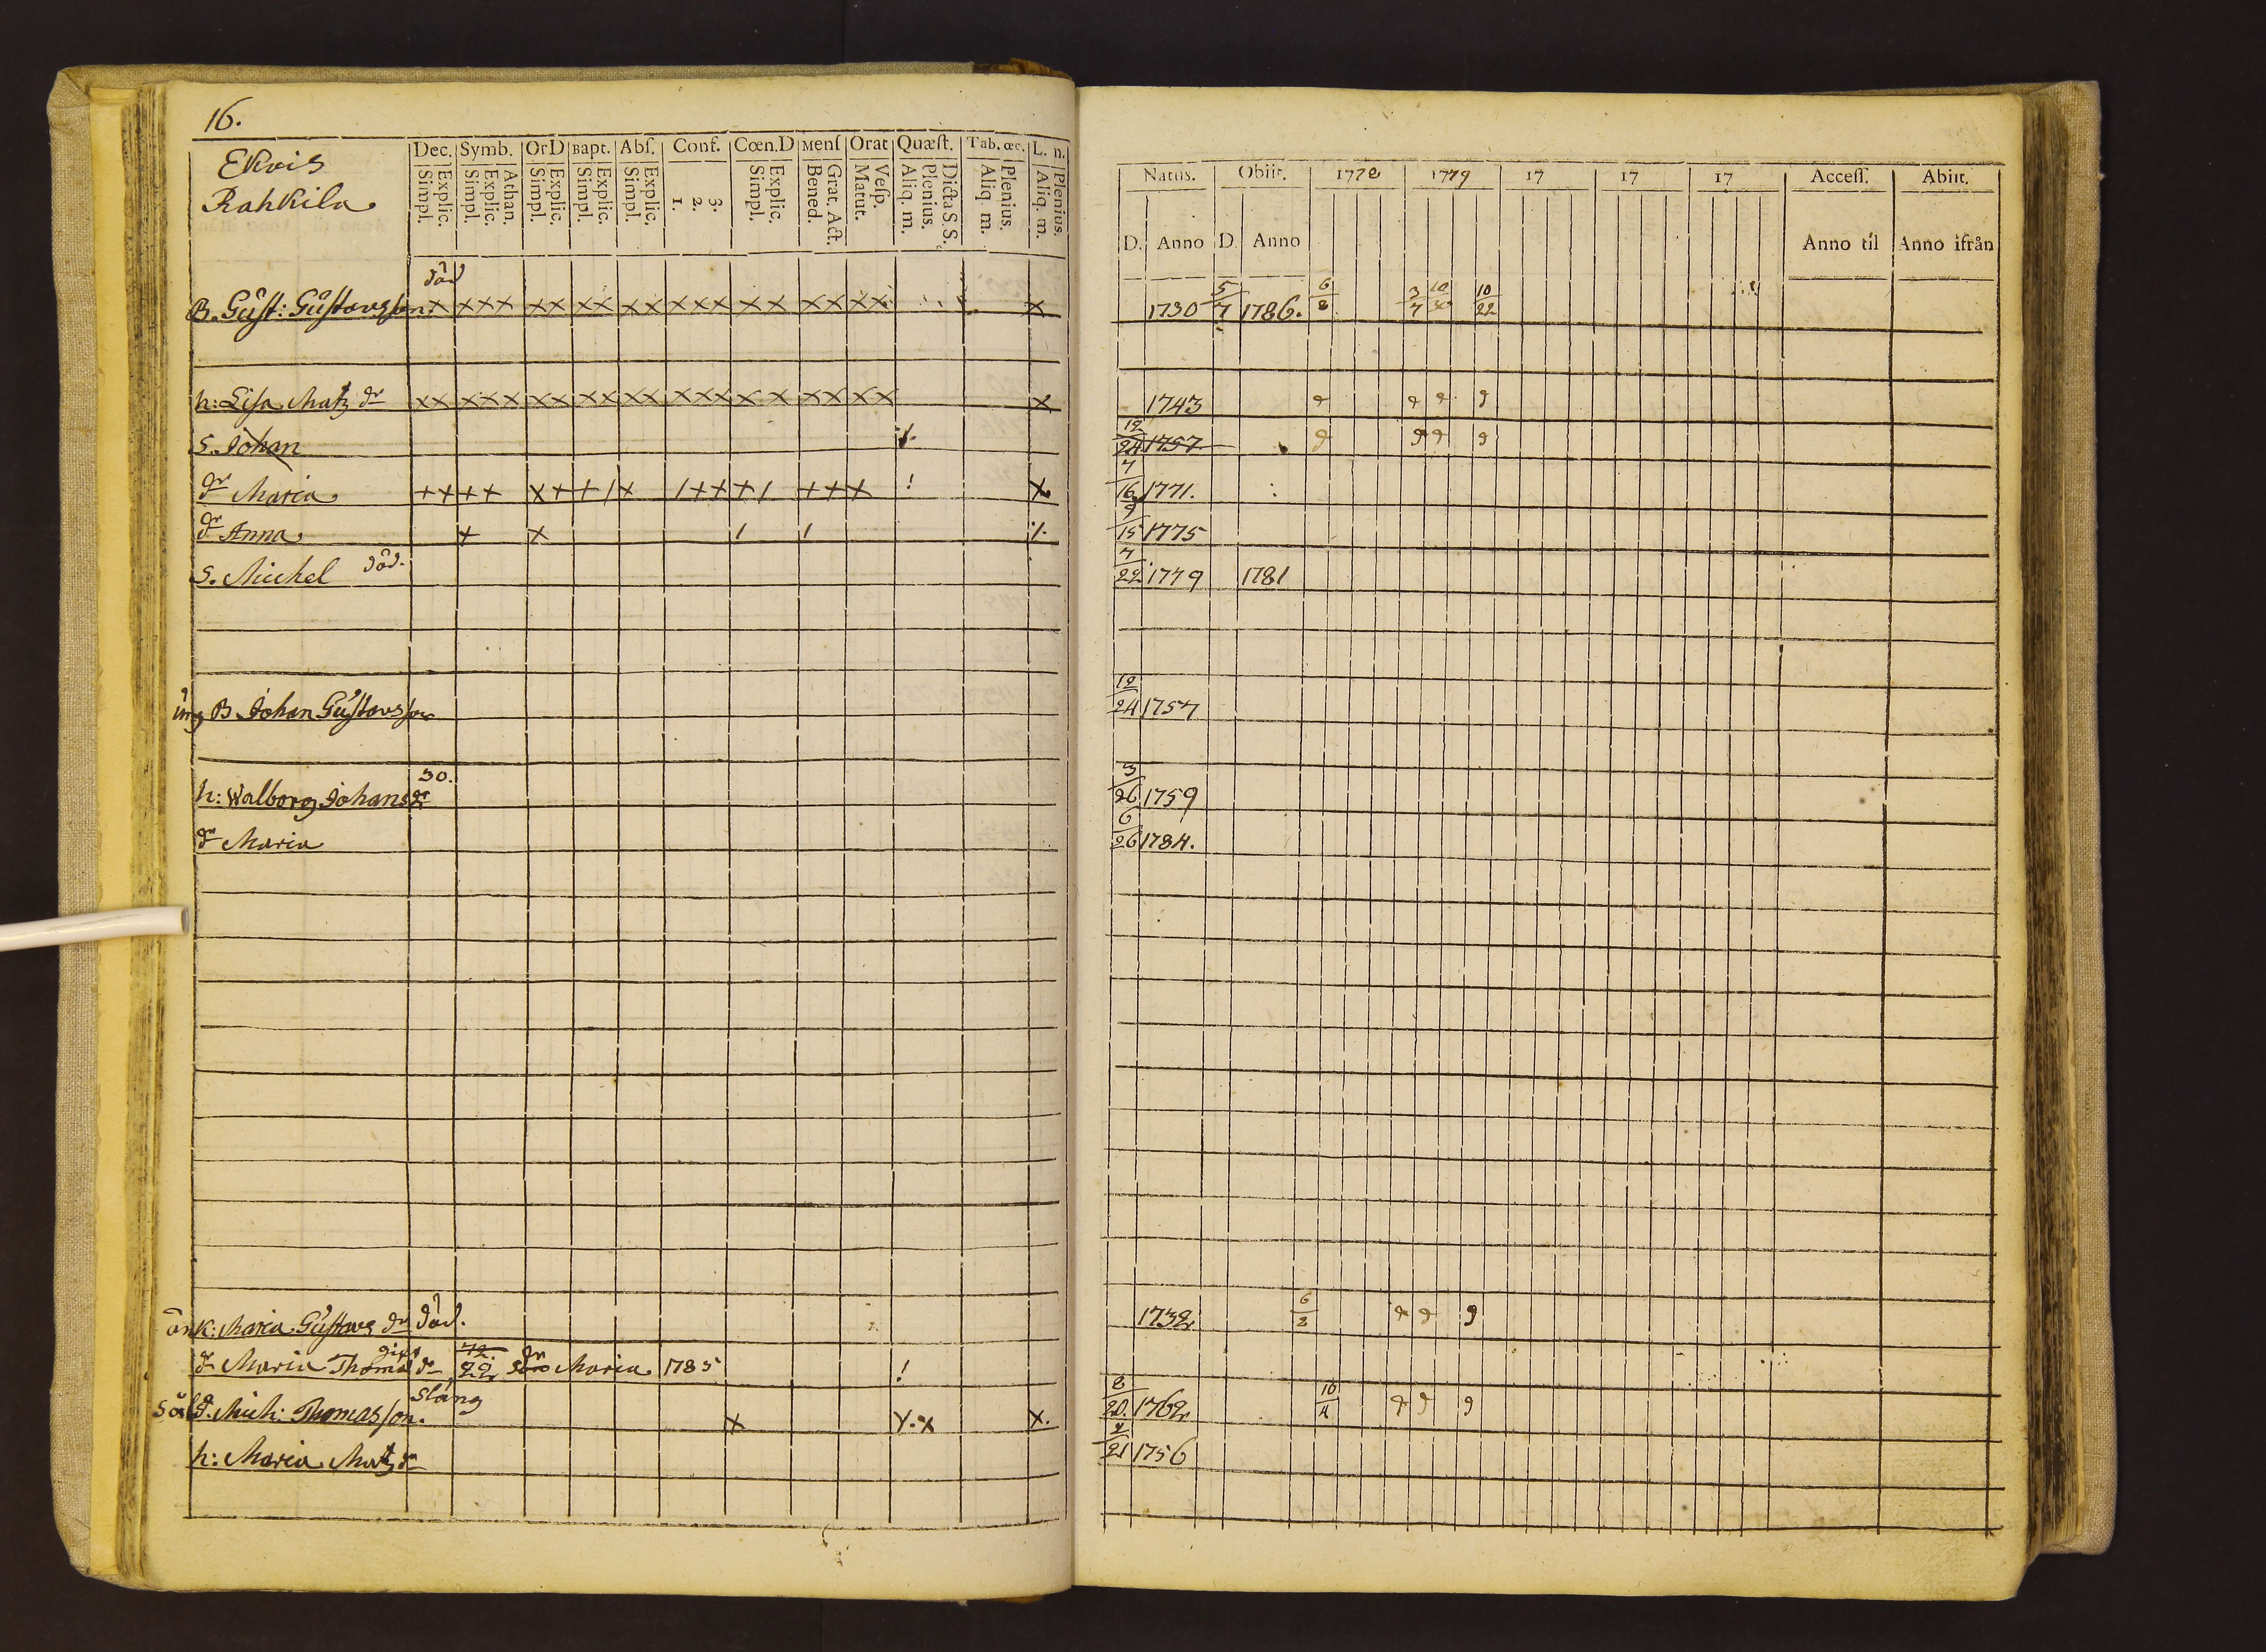 16.
Ekois
Rahkila
Dec. Symb. OrD Bapt. Abſ. Conf. Cœn.D Menſ Orat Quæſt. Tab. œc. L. n.
Explic. Simpl. Athan. Explic. Simpl. Explic. Simpl. Explic. Simpl. Explic. Simpl. 3. 2. 1. Explic. Simpl. Grat. Act. Bened. Veſp. Matut. Dicta S. S. Plenius. Aliq. m. Plenius. Aliq. m. Plenius. Aliq. m.
Natus. Obiit. 1778 1779 17 17 17 Acceſſ. Abiit.
D. Anno D. Anno Anno til Anno ifrån
död
B. Gust: Gustavsson. x x x x x x x x x x x x x x x x x x x x 1730 5/7 1786. 6/8 3/7 10 10/22
h: Lisa Matz dr x x x x x x x x x x x x x x x x x x x x 1743
S. Johan 12/24 1757
dr Maria + + + + x + + / x / + + + / + + x ! x 7/16 1771.
dr Anna + x / / 9/15 1775
S. Michel död. 7/22 1779 1781
ing B Johan Gustavsson 12/24 1757
30.
h: Walborg Johans dr 3/26 1759
dr Maria 6/26 1784.
änk: Maria Gustavs dr död. 1732 6/2
dr Maria Thomas dr gift 22 dr Maria 1785 !
Mich: Thomasson. x x x 8/20. 1762 10/4
h: Maria Matz dr 21 1756